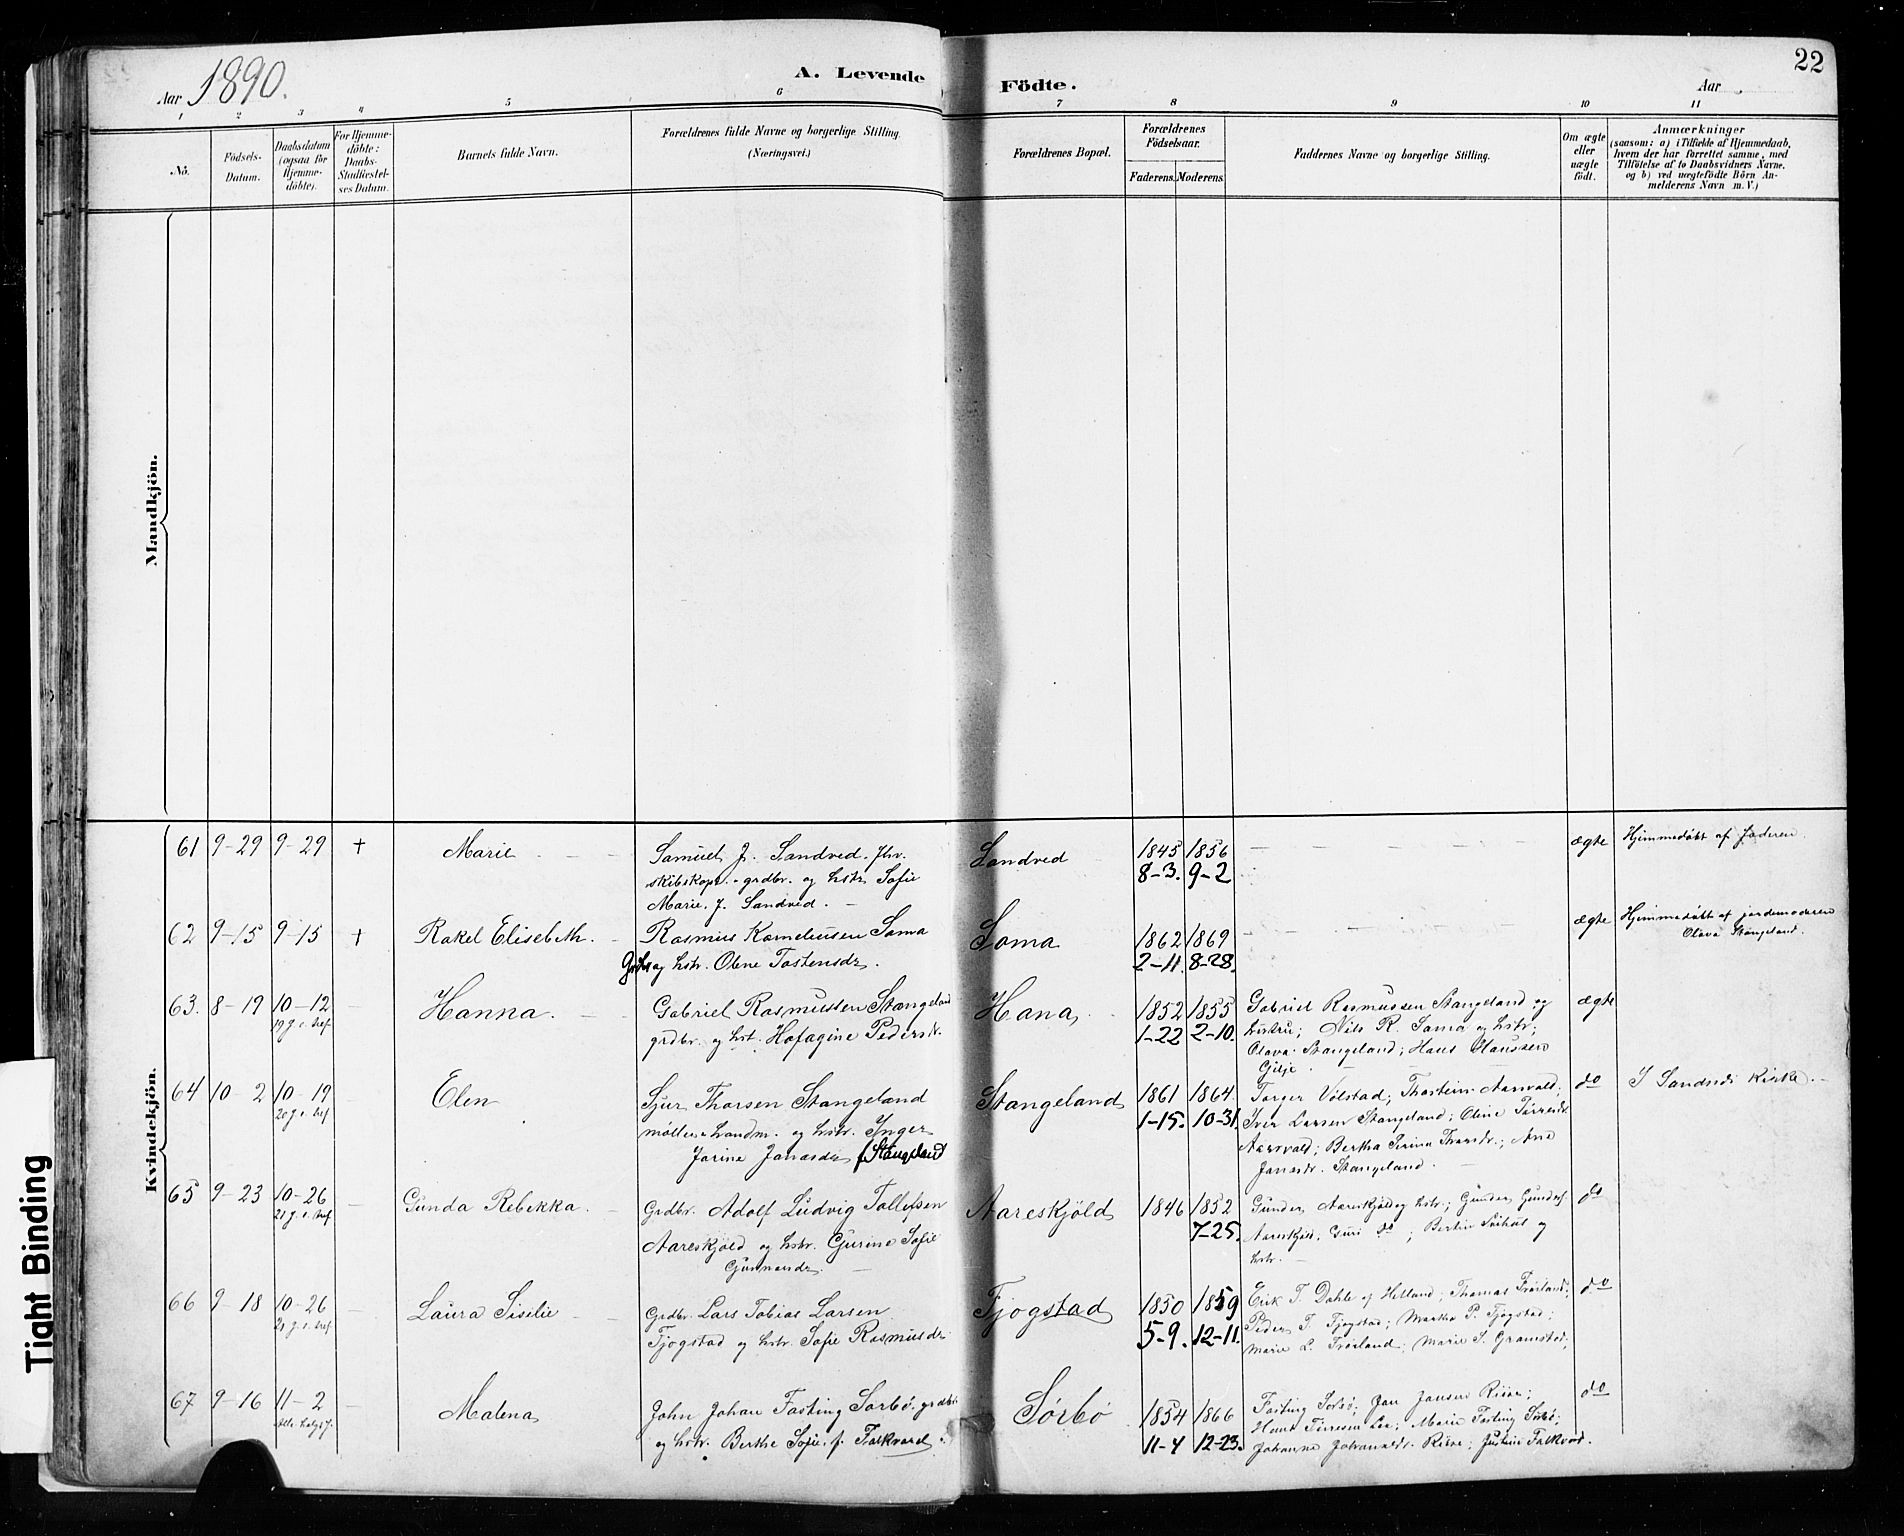 22
Aar 1890.
A. Levende Födte.
Aar
1 2 3 4 5 6 7 8 9 10 11
No.
Födsels-
Datum.
Daabsdatum
(ogsaa for
Hjemme-
döbte).
For Hjemme-
döbte:
Daabs-
Stadfæstel-
ses Datum.
Barnets fulde Navn.
Forældrenes fulde Navne og borgerlige Stilling.
(Næringsvei.)
Forældrenes Bopæl.
Forældrenes
Födselsaar.
Faderens.
Moderens.
Faddernes Navne og borgerlige Stilling.
Om ægte
eller
uægte
födt.
Anmærkninger
(saasom: a) i Tilfælde af Hjemmedaab,
hvem der har forrettet samme, med
Tilföielse af to Daabsvidners Navne.
og b) ved uægtefödte Börn An-
melderens Navn m. V.)
Mandkjön.
Kvindekjön.
61 9-29 9-29 + Marie
Samuel J. Sandved,
skibskapt. - grdbr. og hstr. Sofie
Marie J. Sandved.
Sandved
1845 1856
8-3. 9-2
ægte
Hjemmedøbt af faderen.
62 9-15 9-15 + Rakel Elisebeth.
Rasmus Korneliussen Soma
og hstr. Olene Tostensdr.
Soma
1862 1869
2-11. 8-28.
ægte
Hjemmedøbt af jordemoderen
Olava Stangeland.
63. 8-19 10-12 Hanna.
19 s. e. tref.
Gabriel Rasmussen Stangeland
grdbr. og hst. Hofagine Pedersd.
Hana
1852 1855
1-22 2-10.
Gabriel Rasmussen Stangeland og
hustru; Nils R. Soma og hstr;
Olava Stangeland; Hans Hanssen
Gilje
ægte
64 10-2 10-19 Elen
20 s. e. tref
Sjur Thorsen Stangeland
møller og handm. og hstr. Inger
Jorine Jonasdr. f. Stangeland
Stangeland
1861 1864.
1-15. 10-31.
Torger Volstad; Thorstein Aarsvold;
Iver Larsen Stangeland; Oline
Aarsvold; Bertha Serina; Ane
Jonasdr. Stangeland.
do
I Sandnes kirke.
65 9-23 10-26 Gunda Rebekka.
21 s. e. tref
Grdbr. Adolf Ludvig Tollefsen
Aareskjold og hstr. Gurine Sofie
Gunnarsdr.
Aareskjöld
1846 1852
7-25.
Gunder Aareskjold og hstr.; Gunder Gunders.
Aareskjold, Guri do; Bertin og
hstr.
do
66 9-18 10-26 Laura Sisilie
21 s. e. tref
Grdbr. Lars Tobias Larsen
Fjogstad og hstr. Sofie Rasmusdr
Fjogstad
1850 1859
5-9. 12-11.
Eirk T. Dahle af Helland; Thomas Frøiland;
Peder T. Fjogstad; Martha P. Fjogstad;
Marie L. Frøiland; Marie S. Gramstad,
do
67 9-16 11-2 Malena
Alle helgs f.
John Johan Fasting Sorbø. grdbr.
og hstr. Berthe Sofie f. Falkvard.
Sørbø
1854 1866
11-4 12-23.
Fasting Sorbø; Jan Jansen;
Hans Lea; Marie Fasting Sørbø;
Johanne Johannesdr.; Justine Falkvard.
do
Tight Binding